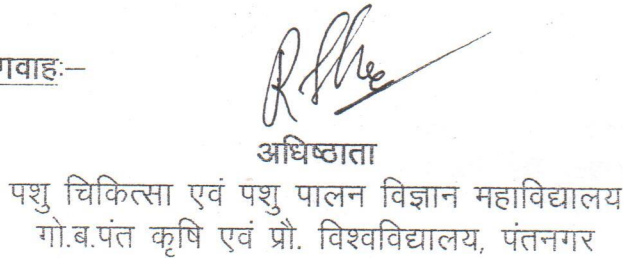 गवाहः—
अधिष्ठाता
पशु चिकित्सा एवं पशु पालन विज्ञान महाविद्यालय
गो.ब.पंत कृषि एवं प्रौ. विश्वविद्यालय, पंतनगर